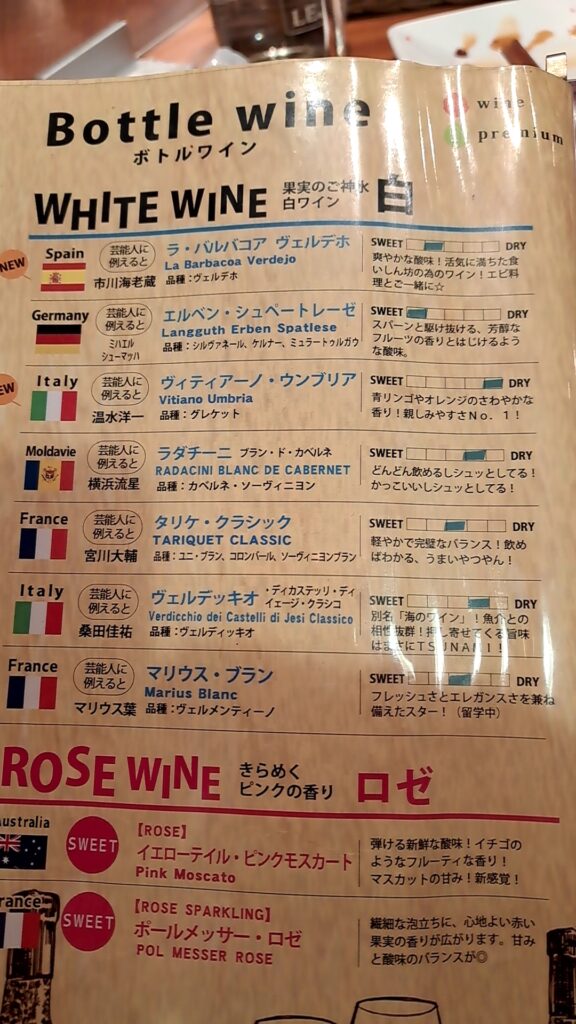 LE
Bottle wine
ボトルワイン
wine
premium
WHITE WINE 果実のご神水
白ワイン 白
NEW
Spain
芸能人に
例えると
市川海老蔵
ラ・バルバコア ヴェルデホ
La Barbacoa Verdejo
品種：ヴェルデホ
SWEET DRY
爽やかな酸味！活気に満ちた食
いしん坊の為のワイン！エビ料
理とご一緒に☆
Germany
芸能人に
例えると
ミハエル
シューマッハ
エルベン・シュペートレーゼ
Langguth Erben Spatlese
品種：シルヴァネール、ケルナー、ミュラートゥルガウ
SWEET DRY
スパーンと駆け抜ける、芳醇な
フルーツの香りとはじけるよう
な酸味。
NEW
Italy
芸能人に
例えると
温水洋一
ヴィティアーノ・ウンブリア
Vitiano Umbria
品種：グレケット
SWEET DRY
青リンゴやオレンジのさわやかな
香り！親しみやすさＮｏ．１！
Moldavie
芸能人に
例えると
横浜流星
ラダチーニ ブラン・ド・カベルネ
RADACINI BLANC DE CABERNET
品種：カベルネ・ソーヴィニヨン
SWEET DRY
どんどん飲めるしシュッとしてる！
かっこいいしシュッとしてる！
France
芸能人に
例えると
宮川大輔
タリケ・クラシック
TARIQUET CLASSIC
品種：ユニ・ブラン、コロンバール、ソーヴィニヨンブラン
SWEET DRY
軽やかで完璧なバランス！飲め
ばわかる、うまいやつやん！
Italy
芸能人に
例えると
桑田佳祐
ヴェルデッキオ ・ディカステッリ・ディ
イェージ・クラシコ
Verdicchio dei Castelli di Jesi Classico
品種：ヴェルディッキオ
SWEET DRY
別名「海のワイン」！魚介との
相性抜群！押し寄せてくる旨味
はまさにＴＳＵＮＡＭＩ！
France
芸能人に
例えると
マリウス葉
マリウス・ブラン
Marius Blanc
品種：ヴェルメンティーノ
SWEET DRY
フレッシュさとエレガンスさを兼ね
備えたスター！（留学中）
ROSE WINE きらめく
ピンクの香り ロゼ
Australia
SWEET
【ROSE】
イエローテイル・ピンクモスカート
Pink Moscato
弾ける新鮮な酸味！イチゴの
ようなフルーティな香り！
マスカットの甘み！新感覚！
France
SWEET
【ROSE SPARKLING】
ポールメッサー・ロゼ
POL MESSER ROSE
繊細な泡立ちに、心地よい赤い
果実の香りが広がります。甘み
と酸味のバランスが◎